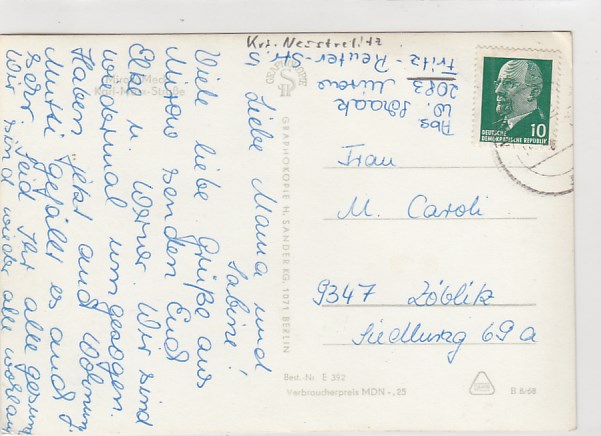 Krs. Neustrelitz
Abs.
W. Schaak
2083 Mirow
Fritz-Reuter-Str
Liebe Mama und
Sabine!
Viele liebe Grüße aus
Mirow senden Euch
Elke u. Werner. Wir sind
wiedermal umgezogen.
Haben jetzt auch Wohnung
Mutti gefällt es auch
sehr. Seid Ihr alle gesund
Wir sind wieder alle wohlauf
Karl-Marx-Straße
GRAPHOKOPIE H. SANDER KG, 1071 BERLIN
DEUTSCHE
DEMOKRATISCHE REPUBLIK
10
Frau
M. Caroli
9347 Zöblitz
Siedlung 69a
Best. Nr. E 392
Verbraucherpreis MDN -,25
B 8/68